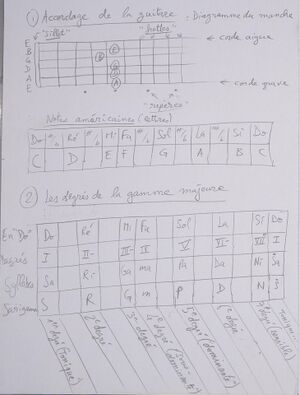 ① Accordage de la guitare : Diagramme du manche
"Sillet" "frettes"
E
B
G
D
A
E
← corde aigue
← corde grave
"repères"
Notes américaines (lettres)
Do Ré Mi Fa Sol La Si Do
C D E F G A B C
② Les degrés de la gamme majeure
En "Do" Do Ré Mi Fa Sol La Si Do
Degrés I II- III- IV V VI- VII I
Syllabes Sa Ri Ga ma Pa Da Ni Sa
Sargam S R G m P D N S
1er degré (tonique)
2e degré
3e degré
4e degré (sous-dominante)
5e degré (dominante)
6e degré
7e degré (sensible)